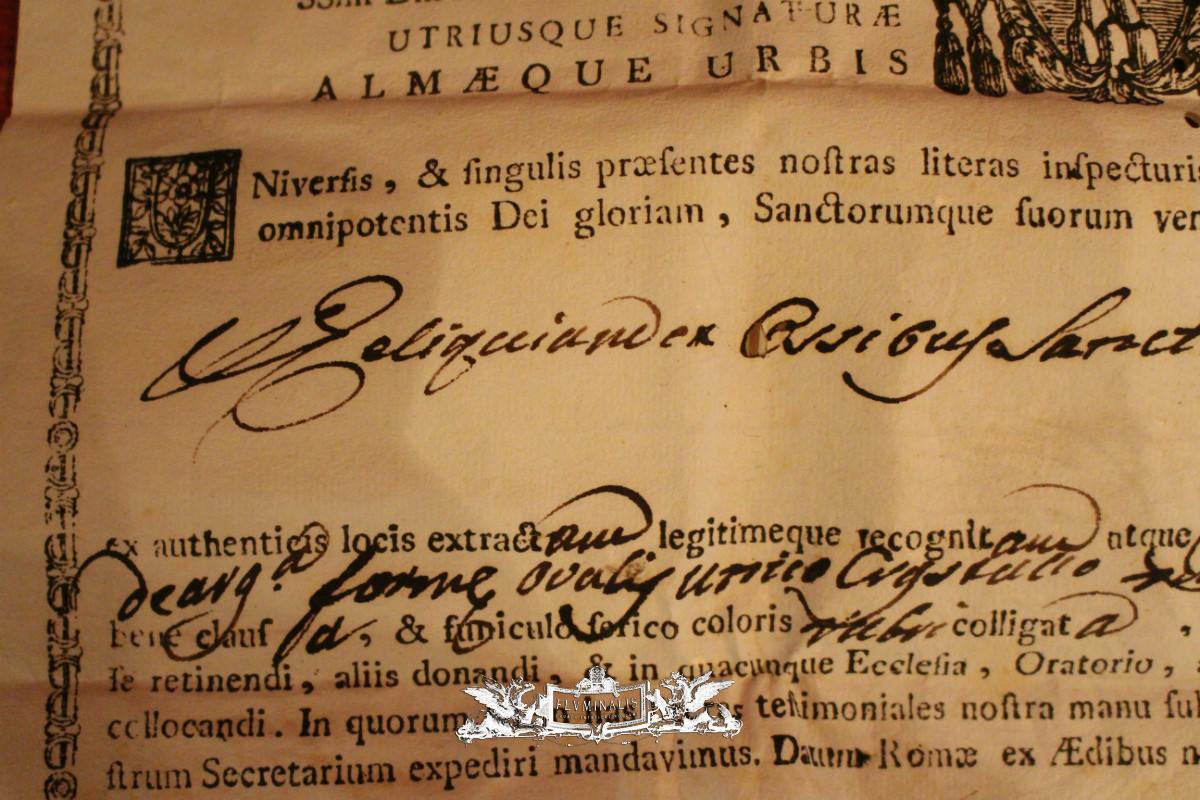 UTRIUSQUE SIGNATURÆ
ALMÆQUE URBIS
UNiversis, & singulis præsentes nostras literas inspecturis
omnipotentis Dei gloriam, Sanctorumque suorum ven
Reliquiam ex Ossibus Sanct
ex authenticis locis extractam legitimeque recognitam atque
de arg.ª forme ovalis unico Crystallo
bene claus ſa, & funiculo serico coloris rubri colligata,
se retinendi, aliis donandi, & in quacunque Ecclesia, Oratorio,
collocandi. In quorum testimoniales nostra manu su
strum Secretarium expediri mandavimus. Datum Romæ ex Ædibus n
FLVMINALIS